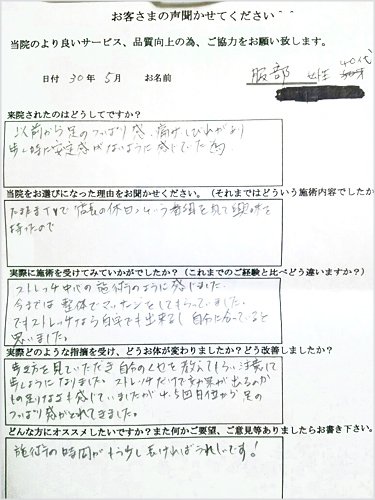 お客さまの声聞かせてください^^
当院のより良いサービス、品質向上の為、ご協力をお願い致します。
日付 30年5月 お名前 服部 女性 40代
来院されたのはどうしてですか？
以前から足のつっぱり感、痛み、しびれがあり
歩く時に安定感がないように感じていた為
当院をお選びになった理由をお聞かせください。（それまではどういう施術内容でしたか
たまたまTVで店長の休日という番組を見て興味を
持ったので
実際に施術を受けてみていかがでしたか？（これまでのご経験と比べどう違いますか？）
ストレッチ中心の施術のように感じました。
今までは整体でマッサージをしてもらっていました。
でもストレッチなら自宅でも出来るし自分に合っていると
思いました。
実際どのような指摘を受け、どうお体が変わりましたか？どう改善しましたか？
歩き方を見ていただき自分のくせを教えてもらい注意して
歩くようになりました。ストレッチだけで効果が出るのか
もの足りなさも感じていましたが4,5回目位から足の
つっぱり感がとれてきました。
どんな方にオススメしたいですか？また何かご要望、ご意見等ありましたらお書き下さい。
施術の時間がもう少し長ければうれしいです！